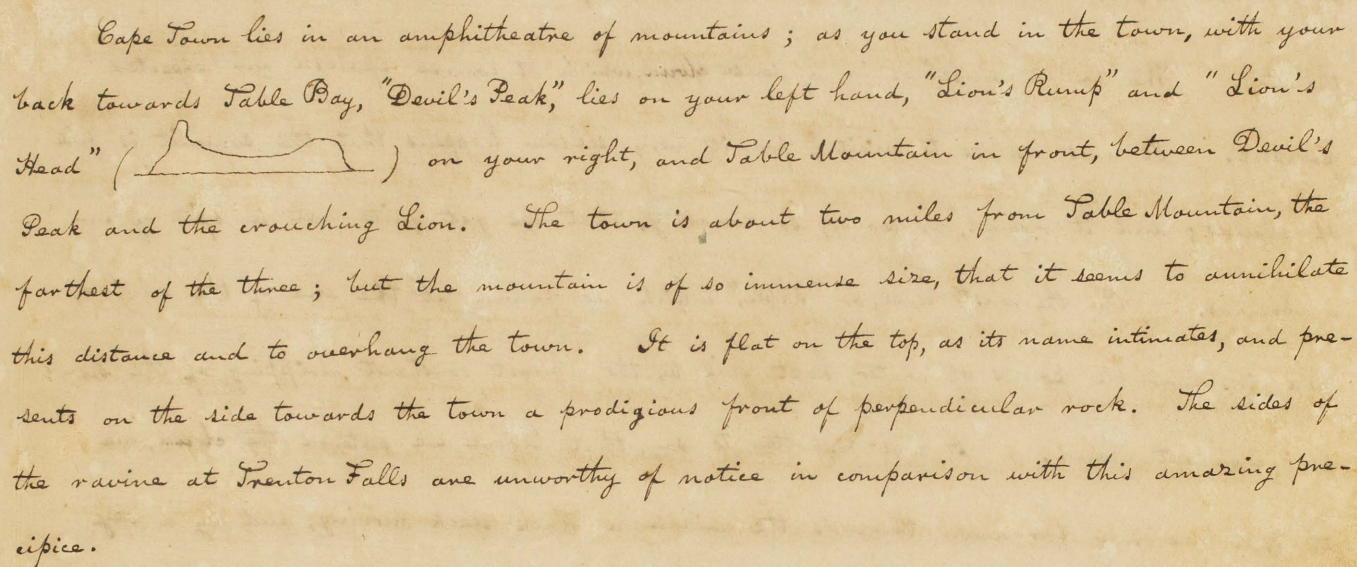 Cape Town lies in an amphitheatre of mountains; as you stand in the town, with your
back towards Table Bay, "Devil's Peak," lies on your left hand, "Lion's Rump" and "Lion's
Head" ( ) on your right, and Table Mountain in front, between Devil's
Peak and the crouching Lion. The town is about two miles from Table Mountain, the
farthest of the three; but the mountain is of so immense size, that it seems to annihilate
this distance and to overhang the town. It is flat on the top, as its name intimates, and pre-
sents on the side towards the town a prodigious front of perpendicular rock. The sides of
the ravine at Trenton Falls are unworthy of notice in comparison with this amazing pre-
cipice.